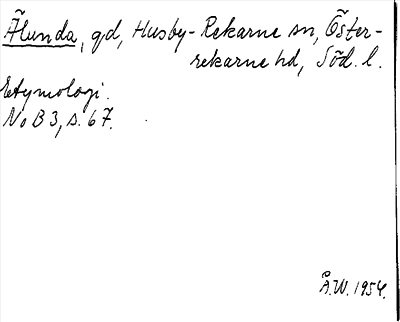 Älunda, gd, Husby-Rekarne sn, Öster-
rekarne hd, Söd. l.
Etymologi.
NoB 3, s. 67.
Å.W. 1954.